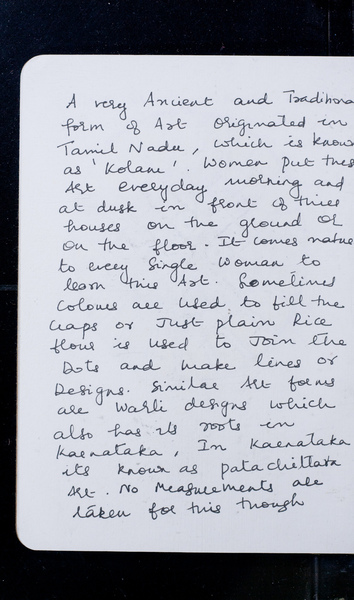 A very Ancient and Traditiona
form of Art originated in
Tamil Nadu, which is know
as 'Kolam'. Women put this
Art everyday morning and
at dusk in front of thier
houses on the ground or
on the floor. It comes nature
to every Single Woman to
learn this Art. Sometimes
Colours are used to fill the
Gaps or Just plain Rice
flour is used to Join the
Dots and make lines or
Designs. Similar Art forms
are Warli designs which
also has its roots in
Karnataka, In Karnataka
its known as patachittara
Art. No Measurements are
taken for this though